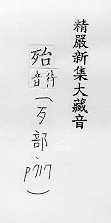 精嚴新集大藏音
殆 待音（歹部, p717）